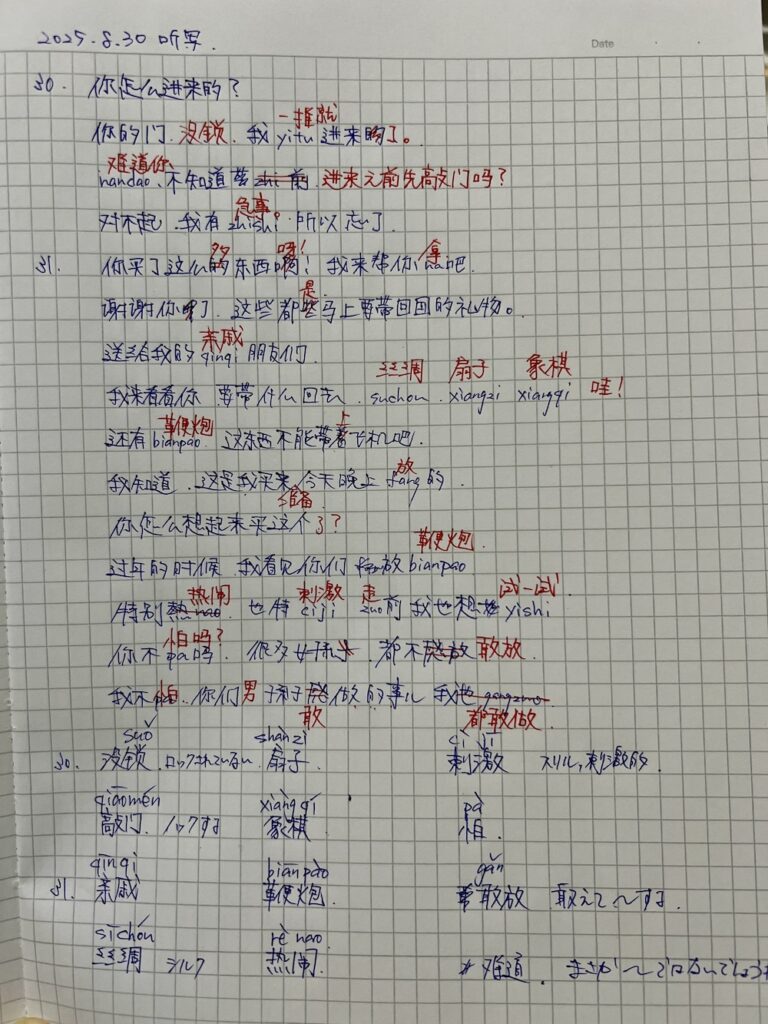 2025.8.30 听写.
Date
30. 你怎么进来的？
一推就
你的门.没锁.我yitu进来的了。
难道你
nandao.不知道 zhi 前.进来之前先敲门吗？
急事
对不起.我有zhishi.所以忘了.
多 呀！ 拿
31. 你买了这么的东西啊！我来帮你na吧.
是
谢谢你了.这些都些马上要带回国的礼物。
亲戚
送给我的qinqi朋友们.
丝绸 扇子 象棋
我来看看你 要带什么回去.suchou.xiangzi xiangqi 哇！
鞭炮 上
还有bianpao.这东西不能带着飞机吧.
放
我知道.这是我买来今天晚上fang的.
准备
你怎么想起来买这个了？
鞭炮.
过年的时候 我看见你们放bianpao
热闹 刺激 走 试一试
特别热nao.也特ciji zuo前我也想 yishi
怕吗？
你不pa吗.很多女孩子 都不敢放 敢放.
我不怕.你们男孩子敢做的事儿 我也gangzuo
敢 都敢做.
suǒ shànzi cì jī
30. 没锁.ロックされていない.扇子. 刺激 スリル,刺激的.
qiāomén xiàngqí pà
敲门.ノックする 象棋. 怕.
qīnqi biānpào gǎn
31. 亲戚 鞭炮. 敢放 敢えて〜する.
sīchóu rè nao
丝绸 シルク 热闹. * 难道.まさか〜ではないでしょう